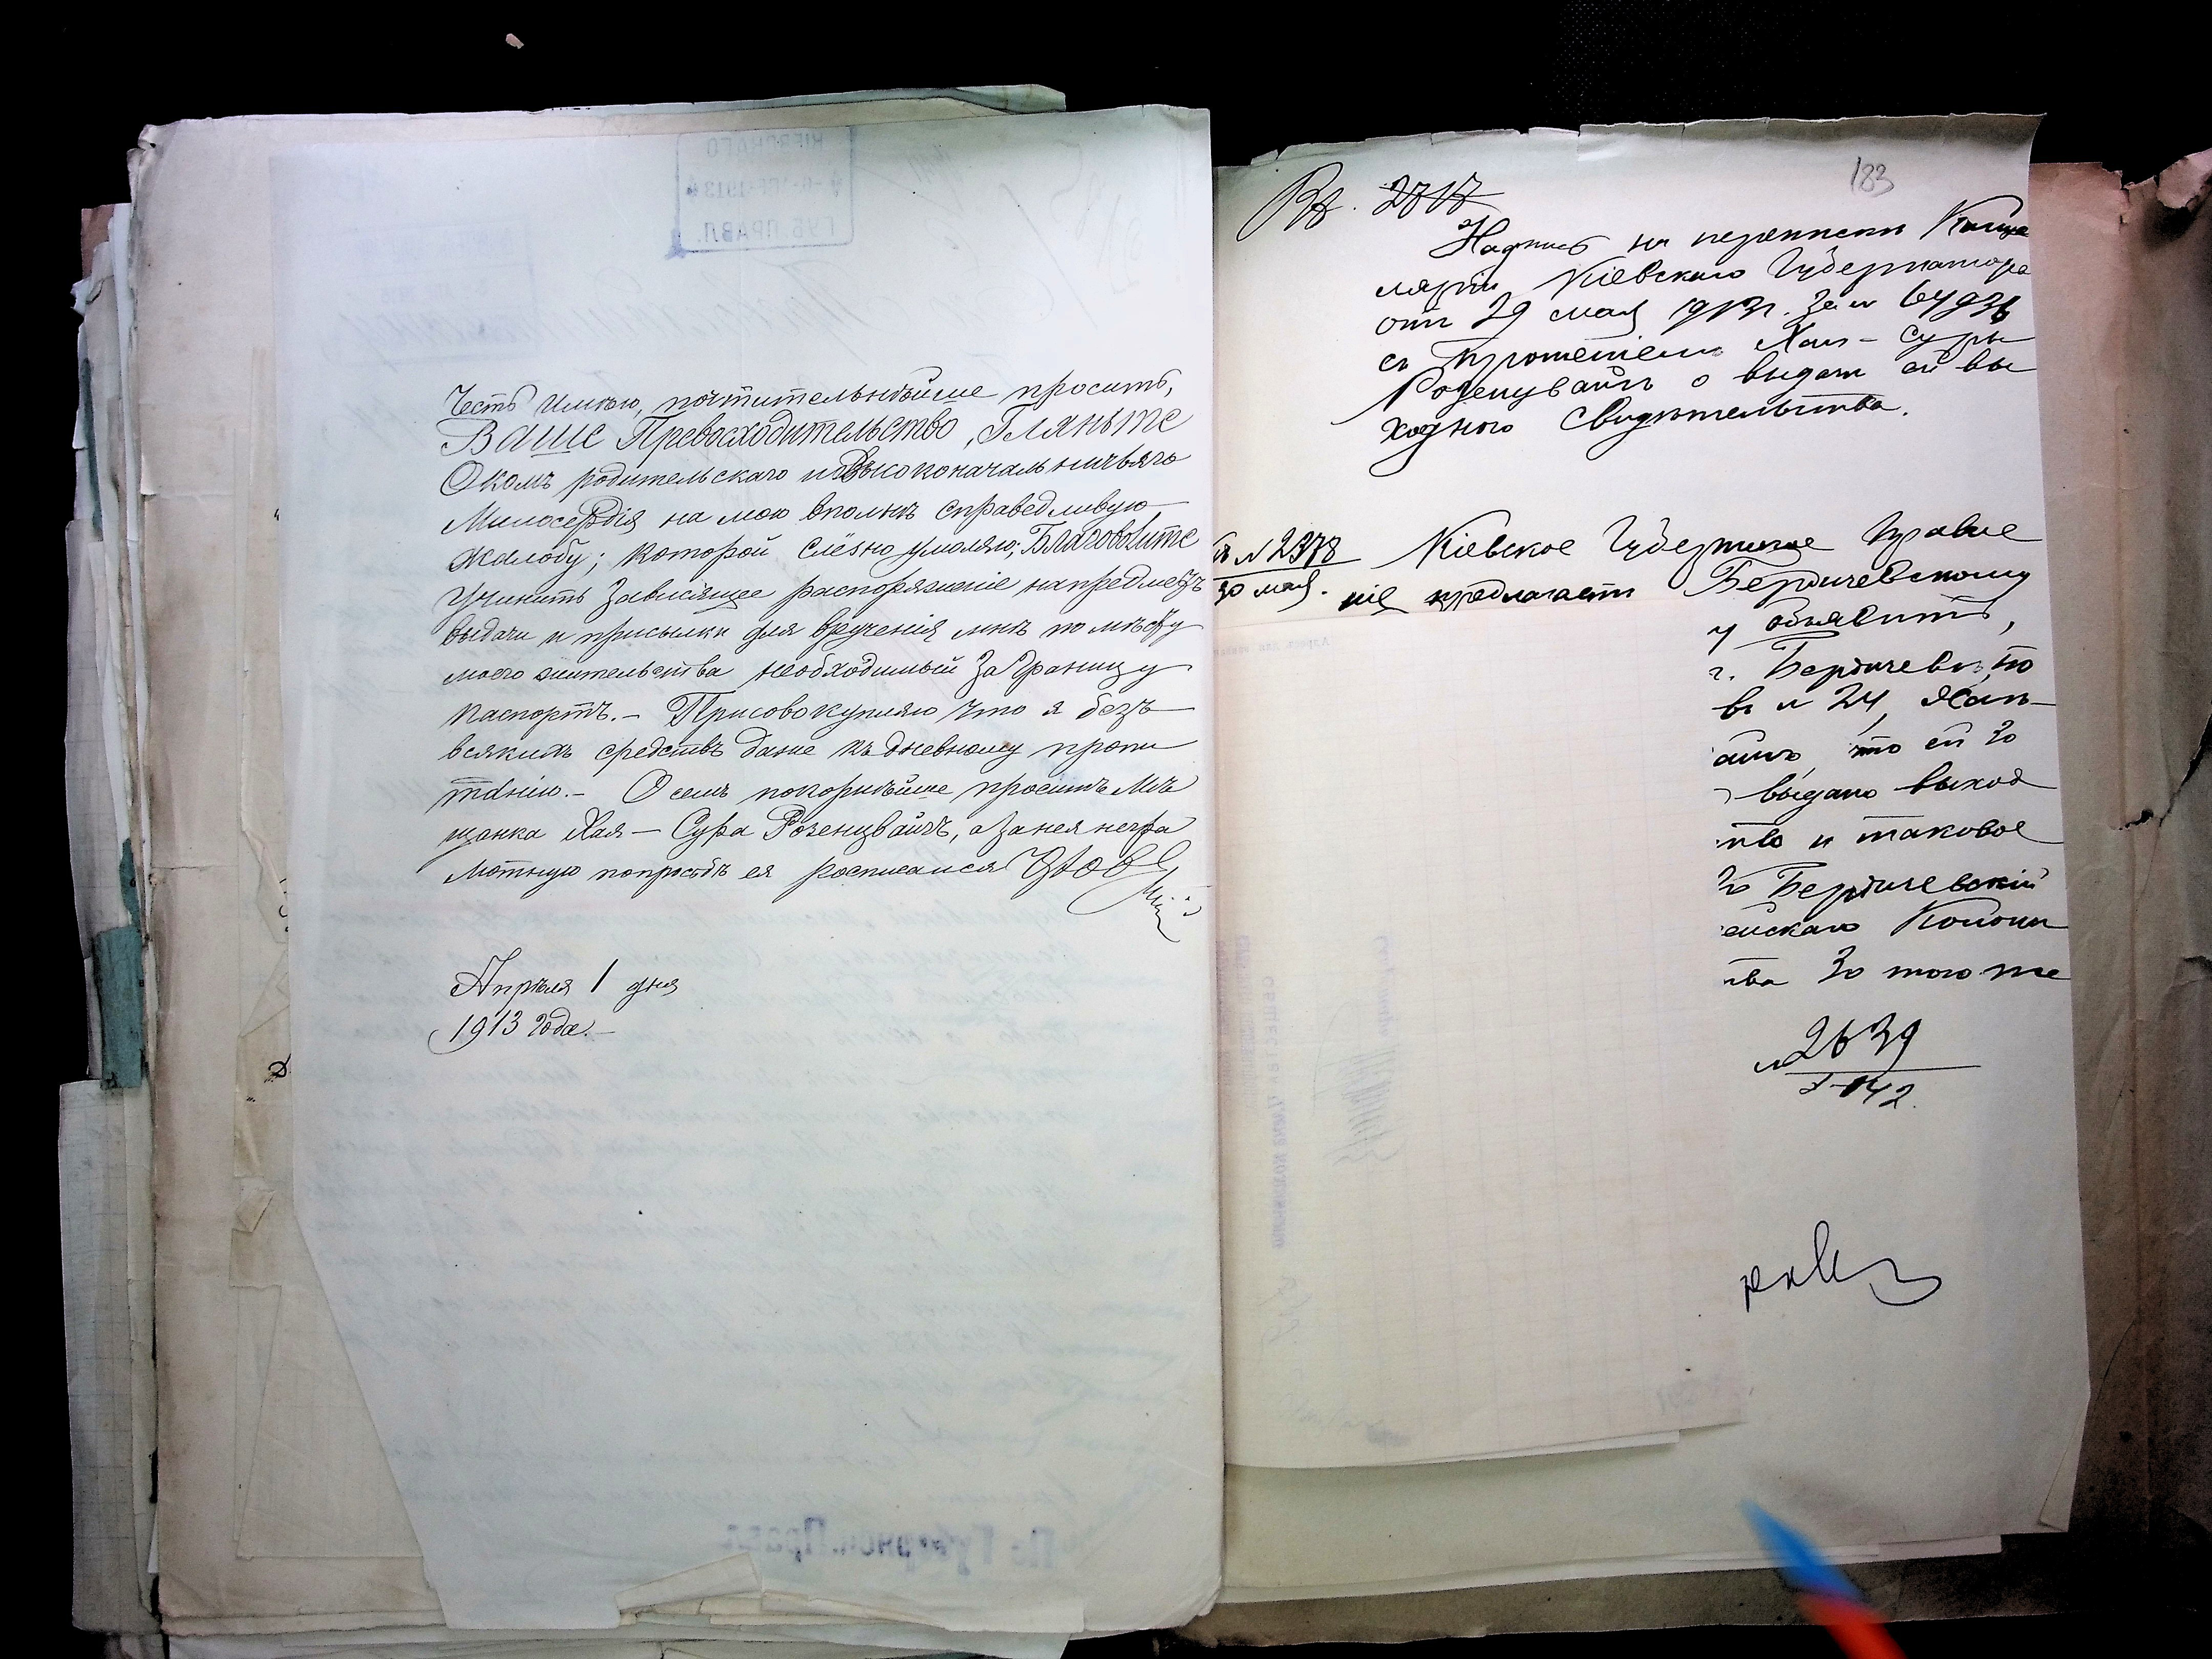 Честь имѣю, почтительнѣйше просить,
Ваше Превосходительство, Гляньте
Окомъ родительскаго и Высоконачальничьяго
Милосердія на мою вполнѣ справедливую
жалобу; которой слёзно умоляю; Благоволите
Учинить зависящее распоряженіе на предметъ
выдачи и присылки для врученія мнѣ по мѣсту
моего жительства необходимый Заграницу
паспортъ.- Присовокупляю что я безъ
всякихъ средствъ даже къ дневному пропи
танію.- О семъ покорнѣйше проситъ Мѣ
щанка Хая-Сура Розенцвайгъ, а за нея негра
мотную по просьбѣ ея росписался
Апрѣля 1 дня
1913 года.-
183
Вх. 2717
Надпись на перепискѣ Канце
ляріи Кіевскаго Губернатора
отъ 29 мая 1913г. за №
съ прошеніемъ Хаи-Суры
Розенцвайгъ о выдачѣ ей вы
ходного свидѣтельства.
№ 2378 Кіевское Губернское Правле
30 мая. ніе предлагаетъ Бердичевскому
у объявить,
г. Бердичевѣ, по
№ 24, Хаи-
айгъ, что ей 30
выдано выход
тво и таковое
Бердичевскій
ейскаго Колони
тва 30 того же
№ 2639